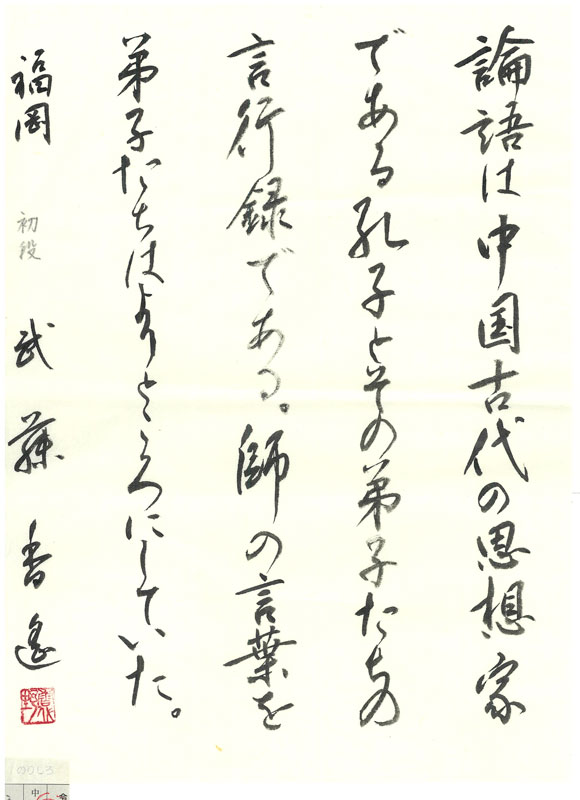 論語は中国古代の思想家
である孔子とその弟子たちの
言行録である。師の言葉を
弟子たちはよりところにしていた。
福岡 初段 武藤香遙
のりしろ
中